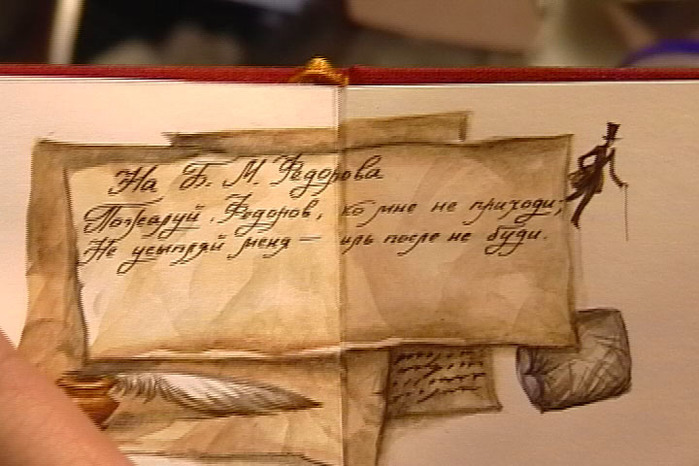 На Б. М. Федорова
Пожалуй, Федоров, ко мне не приходи;
Не усыпляй меня — иль после не буди.